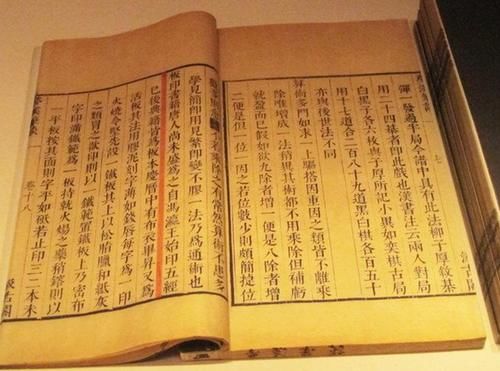 彈 發過半局今譜中具有此法柳子厚敘棊
用二十四棊者卽此戲也漢書註云兩人對局
白黑子各六枚與子厚所記小異如弈棋古局
用十七道合二百八十九道黑白棋各百五十
亦與後世法不同
算術多門如求一上驅搭因重因之類皆不離乘
除唯增成一法稍異其術都不用乘除但補虧
就盈而已假如欲九除者增一便是八除者增
二便是但一位一因之若位數少則頗簡捷位
若乘除之有常然算術不患多
學見簡卽用見繁卽變不膠一法乃爲通術也
板印書籍唐人尚未盛爲之自馮瀛王始印五經
已後典籍皆爲板本慶曆中有布衣畢昇又爲
活板其法用膠泥刻字薄如錢唇每字爲一印
火燒令堅先設一鐵板其上以松脂臘和紙灰
之類冒之欲印則以一鐵範置鐵板上乃密布
字印滿鐵範爲一板持就火煬之藥稍鎔則以
一平板按其面則字平如砥若止印三二本未
卷十八
汲古閣